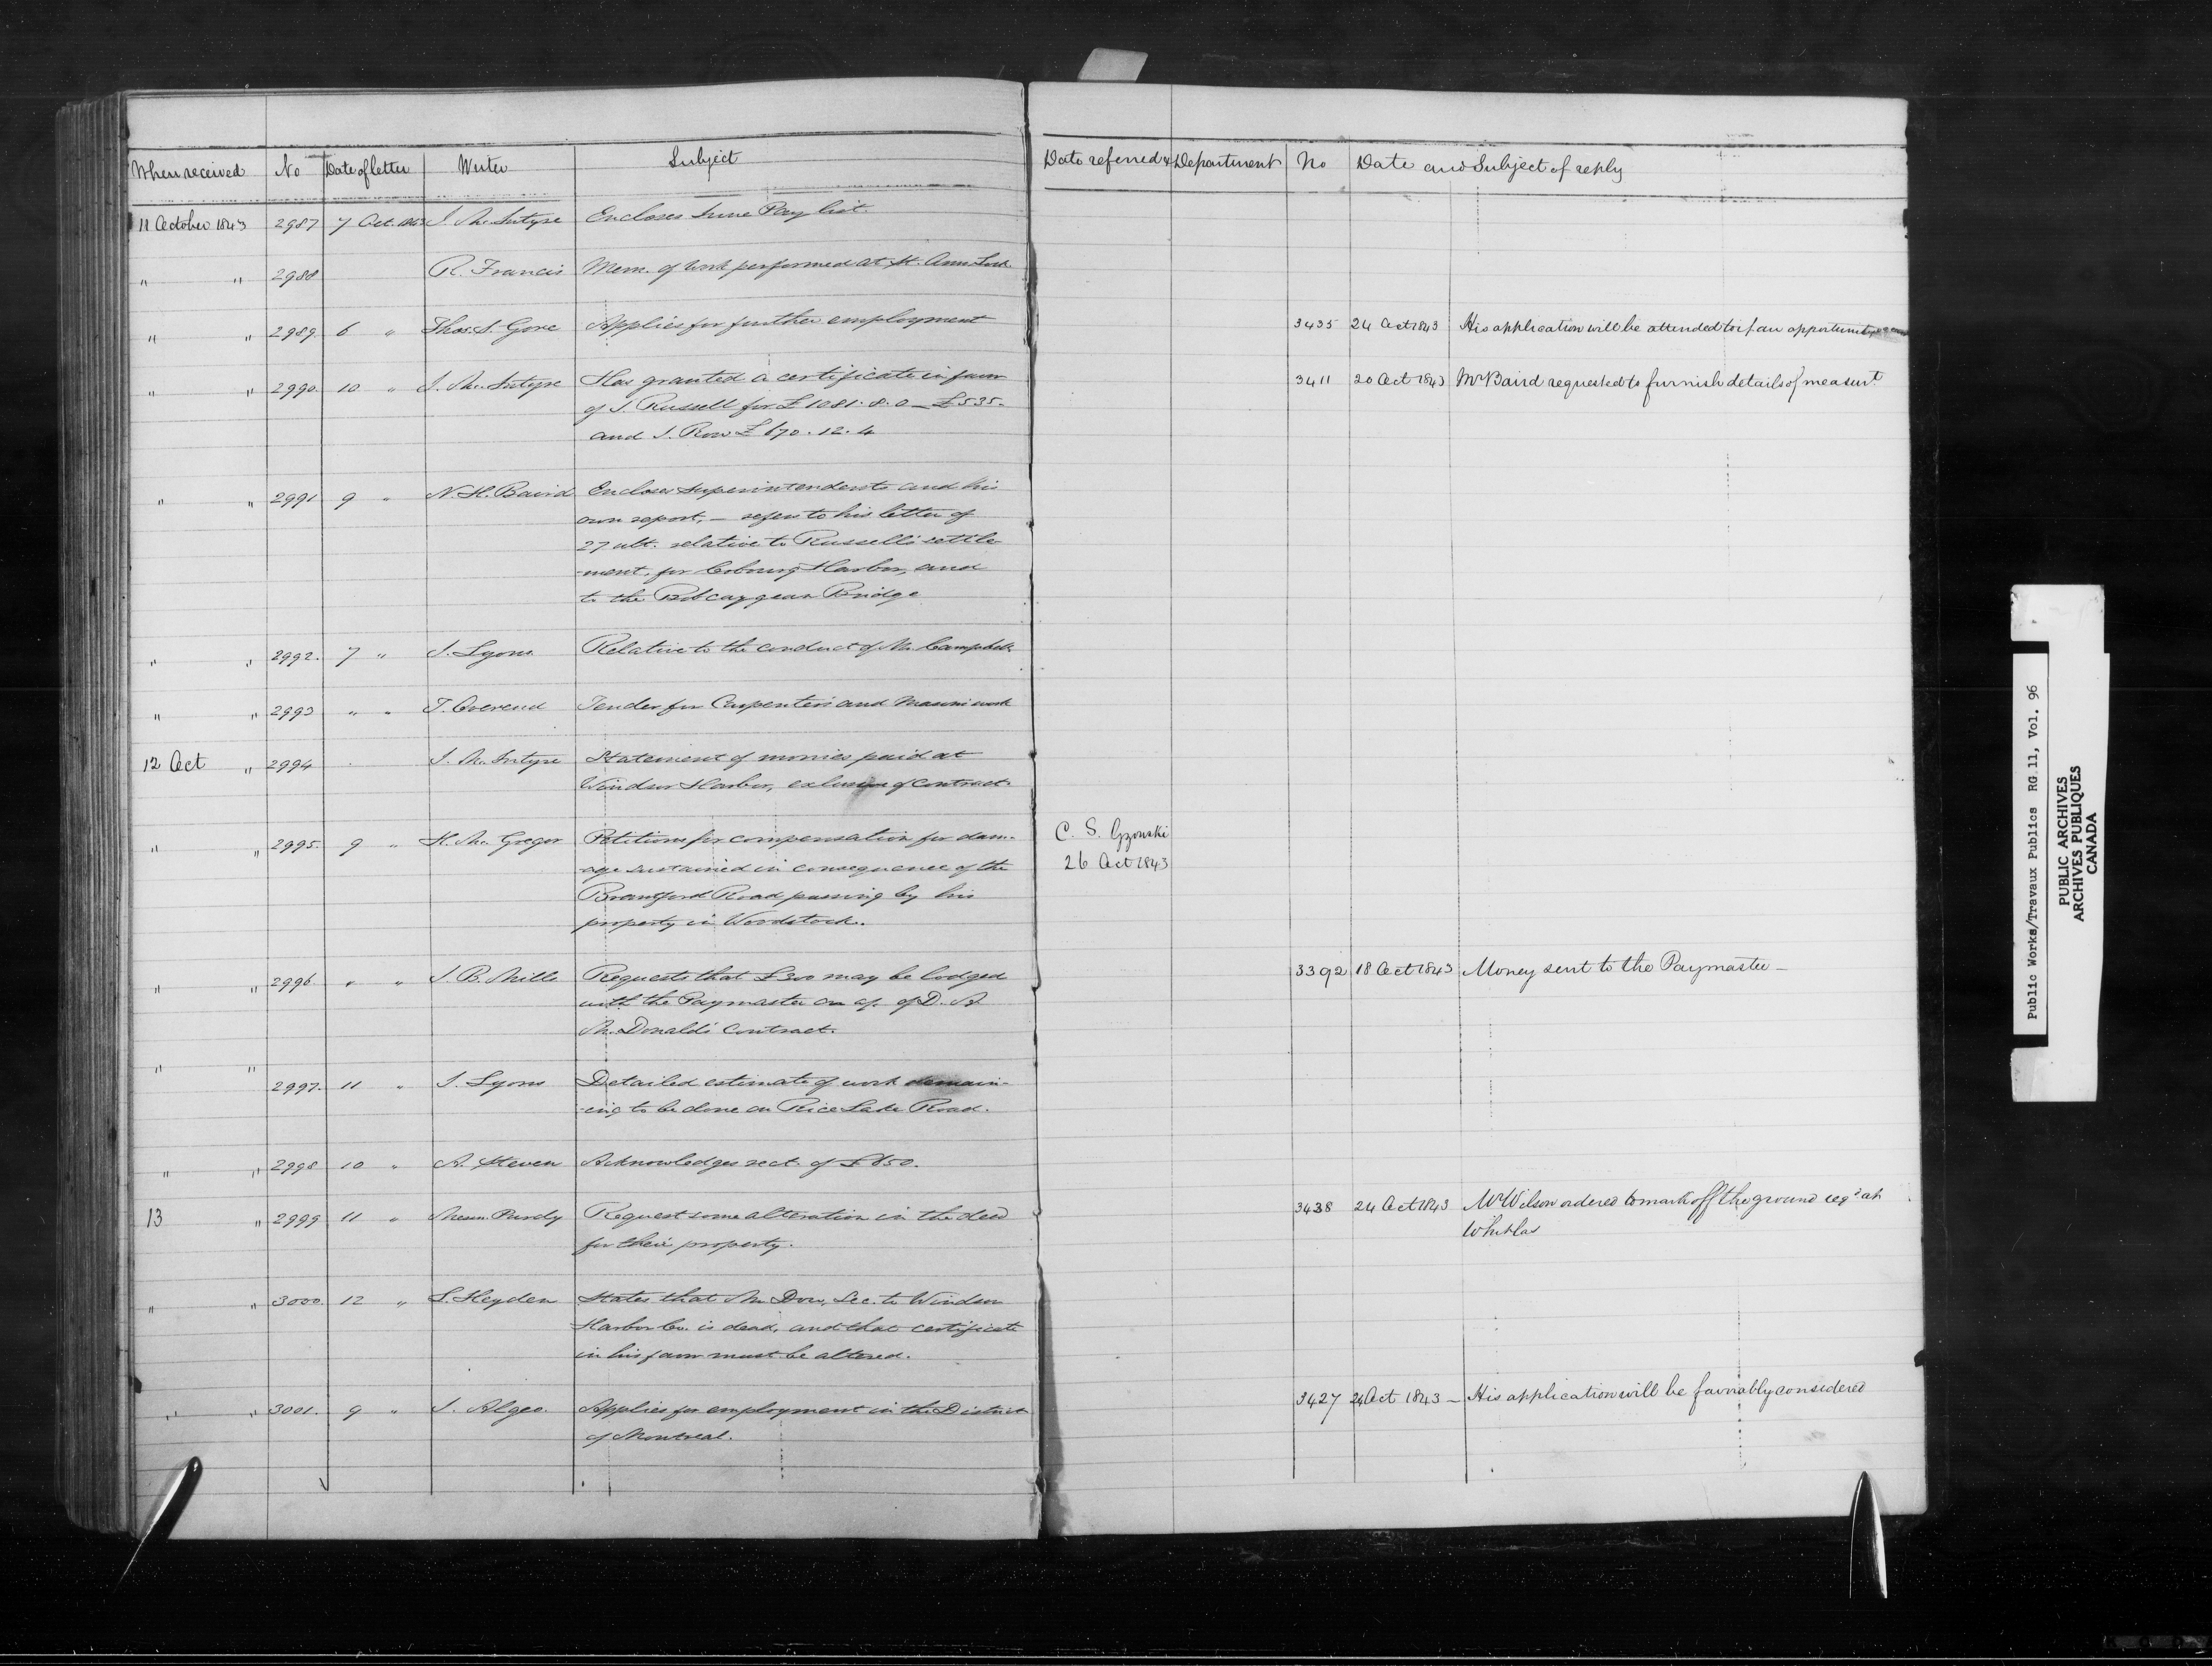 When received No Date of letter Writer Subject Date referred & Department No Date and Subject of reply
11 October 1843 2987 7 Oct. 1843 J. McIntyre Encloses June Pay list.
" " 2988 R. Francis Mem. of work performed at St. Anns Lock.
" " 2989 6 " Thos. S. Gore Applies for further employment 3435 24 Oct 1843 His application will be attended to if an opportunity
" " 2990 10 " J. McIntyre Has granted a certificate in favor 3411 20 Oct 1843 Mr Baird requested to furnish details of measurt
of J. Russell for £1081.8.0 — £535.
and J. Row £670.12.4
" " 2991 9 " N. H. Baird Encloses Superintendents and his
own report, — refers to his letter of
27 ult. relative to Russell's settle-
-ment, for Cobourg Harbor, and
to the Bobcaygean Bridge
" " 2992. 7 " J. Lyons Relative to the conduct of Mr. Campbell.
" " 2993 " " T. Overend Tender for Carpenters and Masons work
12 Oct " 2994 J. McIntyre Statement of monies paid at
Windsor Harbor, exclusive of contract.
" " 2995. 9 " H. McGregor Petitions for compensation for dam- C. S. Gzowski
-age sustained in consequence of the 26 Oct 1843
Brantford Road passing by his
property in Woodstock.
" " 2996 " " J. B. Mills Requests that £300 may be lodged 3392 18 Oct 1843 Money sent to the Paymaster —
with the Paymaster on a/c of D. A.
McDonald's contract.
" " 2997. 11 " J. Lyons Detailed estimate of work remain-
-ing to be done on Rice Lake Road.
" " 2998 10 " A. Steven Acknowledges rect. of £650.
13 " 2999 11 " Messrs Purdy Request some alteration in the deed 3438 24 Oct 1843 Mr Wilson ordered to mark off the ground reqd at
for their property. Whitlas
" " 3000. 12 " L. Heyden States that Mr Dow, Sec. to Windsor
Harbor Co. is dead, and that certificate
in his favor must be altered.
" " 3001. 9 " J. Algeo. Applies for employment in the District 3427 24 Oct 1843 — His application will be favorably considered
of Montreal.
Public Works/Travaux Publics RG 11, Vol. 96
PUBLIC ARCHIVES
ARCHIVES PUBLIQUES
CANADA